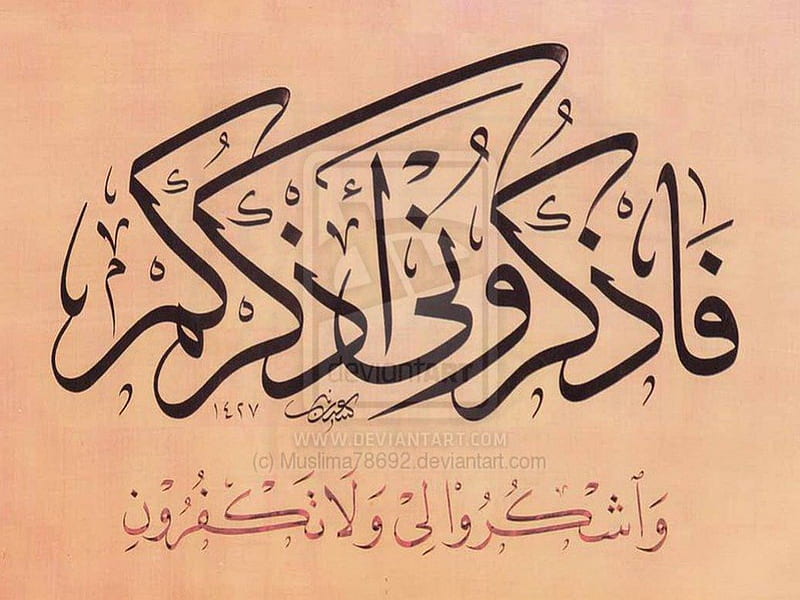 فَاذْكُرُونِي أَذْكُرْكُمْ
١٤٢٧
deviantART
WWW.DEVIANTART.COM
(c) Muslima78692.deviantart.com
وَاشْكُرُوا لِي وَلَا تَكْفُرُونِ